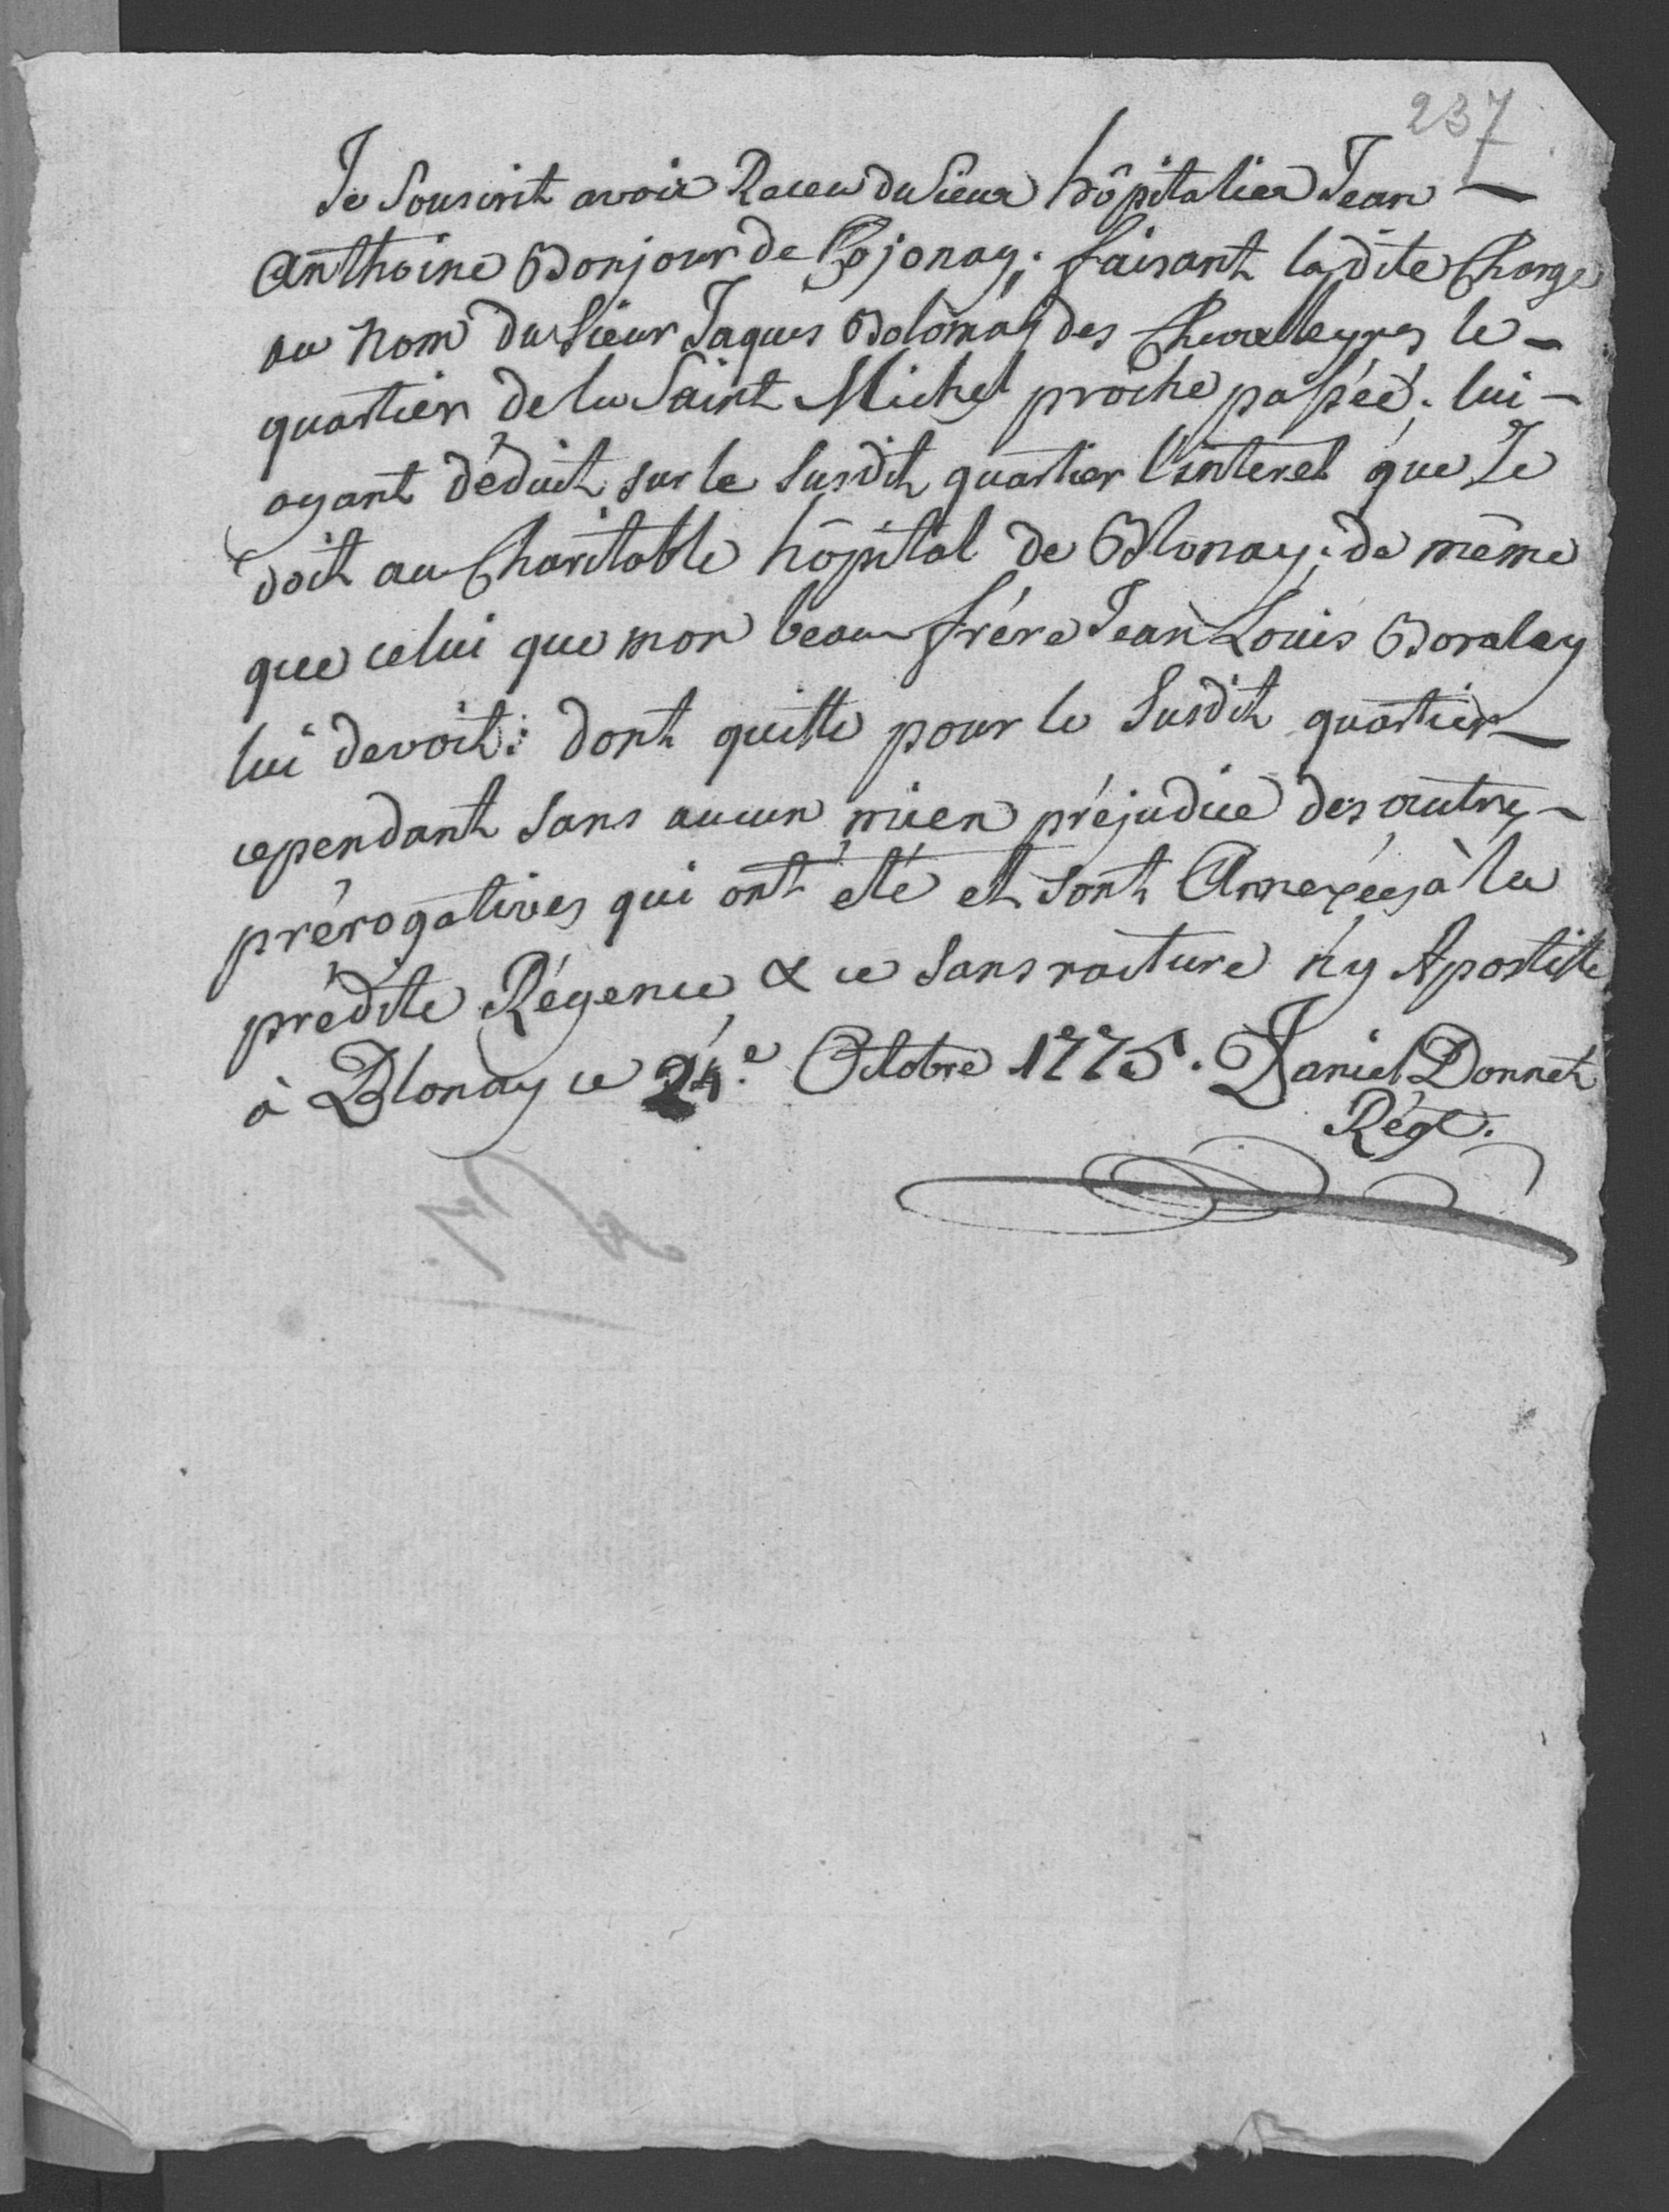 237
Je Souscrit avoir Receu du Sieur hôpitalier Jean —
Anthoine Bonjour de Cojonay; faisant ladite Charge
au Nom du Sieur Jaques Bolomay des Chevaleyres le —
quartier de la Saint Michel proche passée; lui —
ayant déduit sur le susdit quartier l'interet que Je
doit au Charitable hôpital de Blonay; de même
que celui que mon beau frére Jean Louis Boraley
lui devoit: dont quitte pour le Susdit quartier —
cependant sans aucun mien préjudice des autres —
prérogatives qui ont été et sont Annexées à la
prédite Régence, & ce sans rature ny Apostille
à Blonay ce 24.e Octobre 1775. Daniel Donnet
Régt.